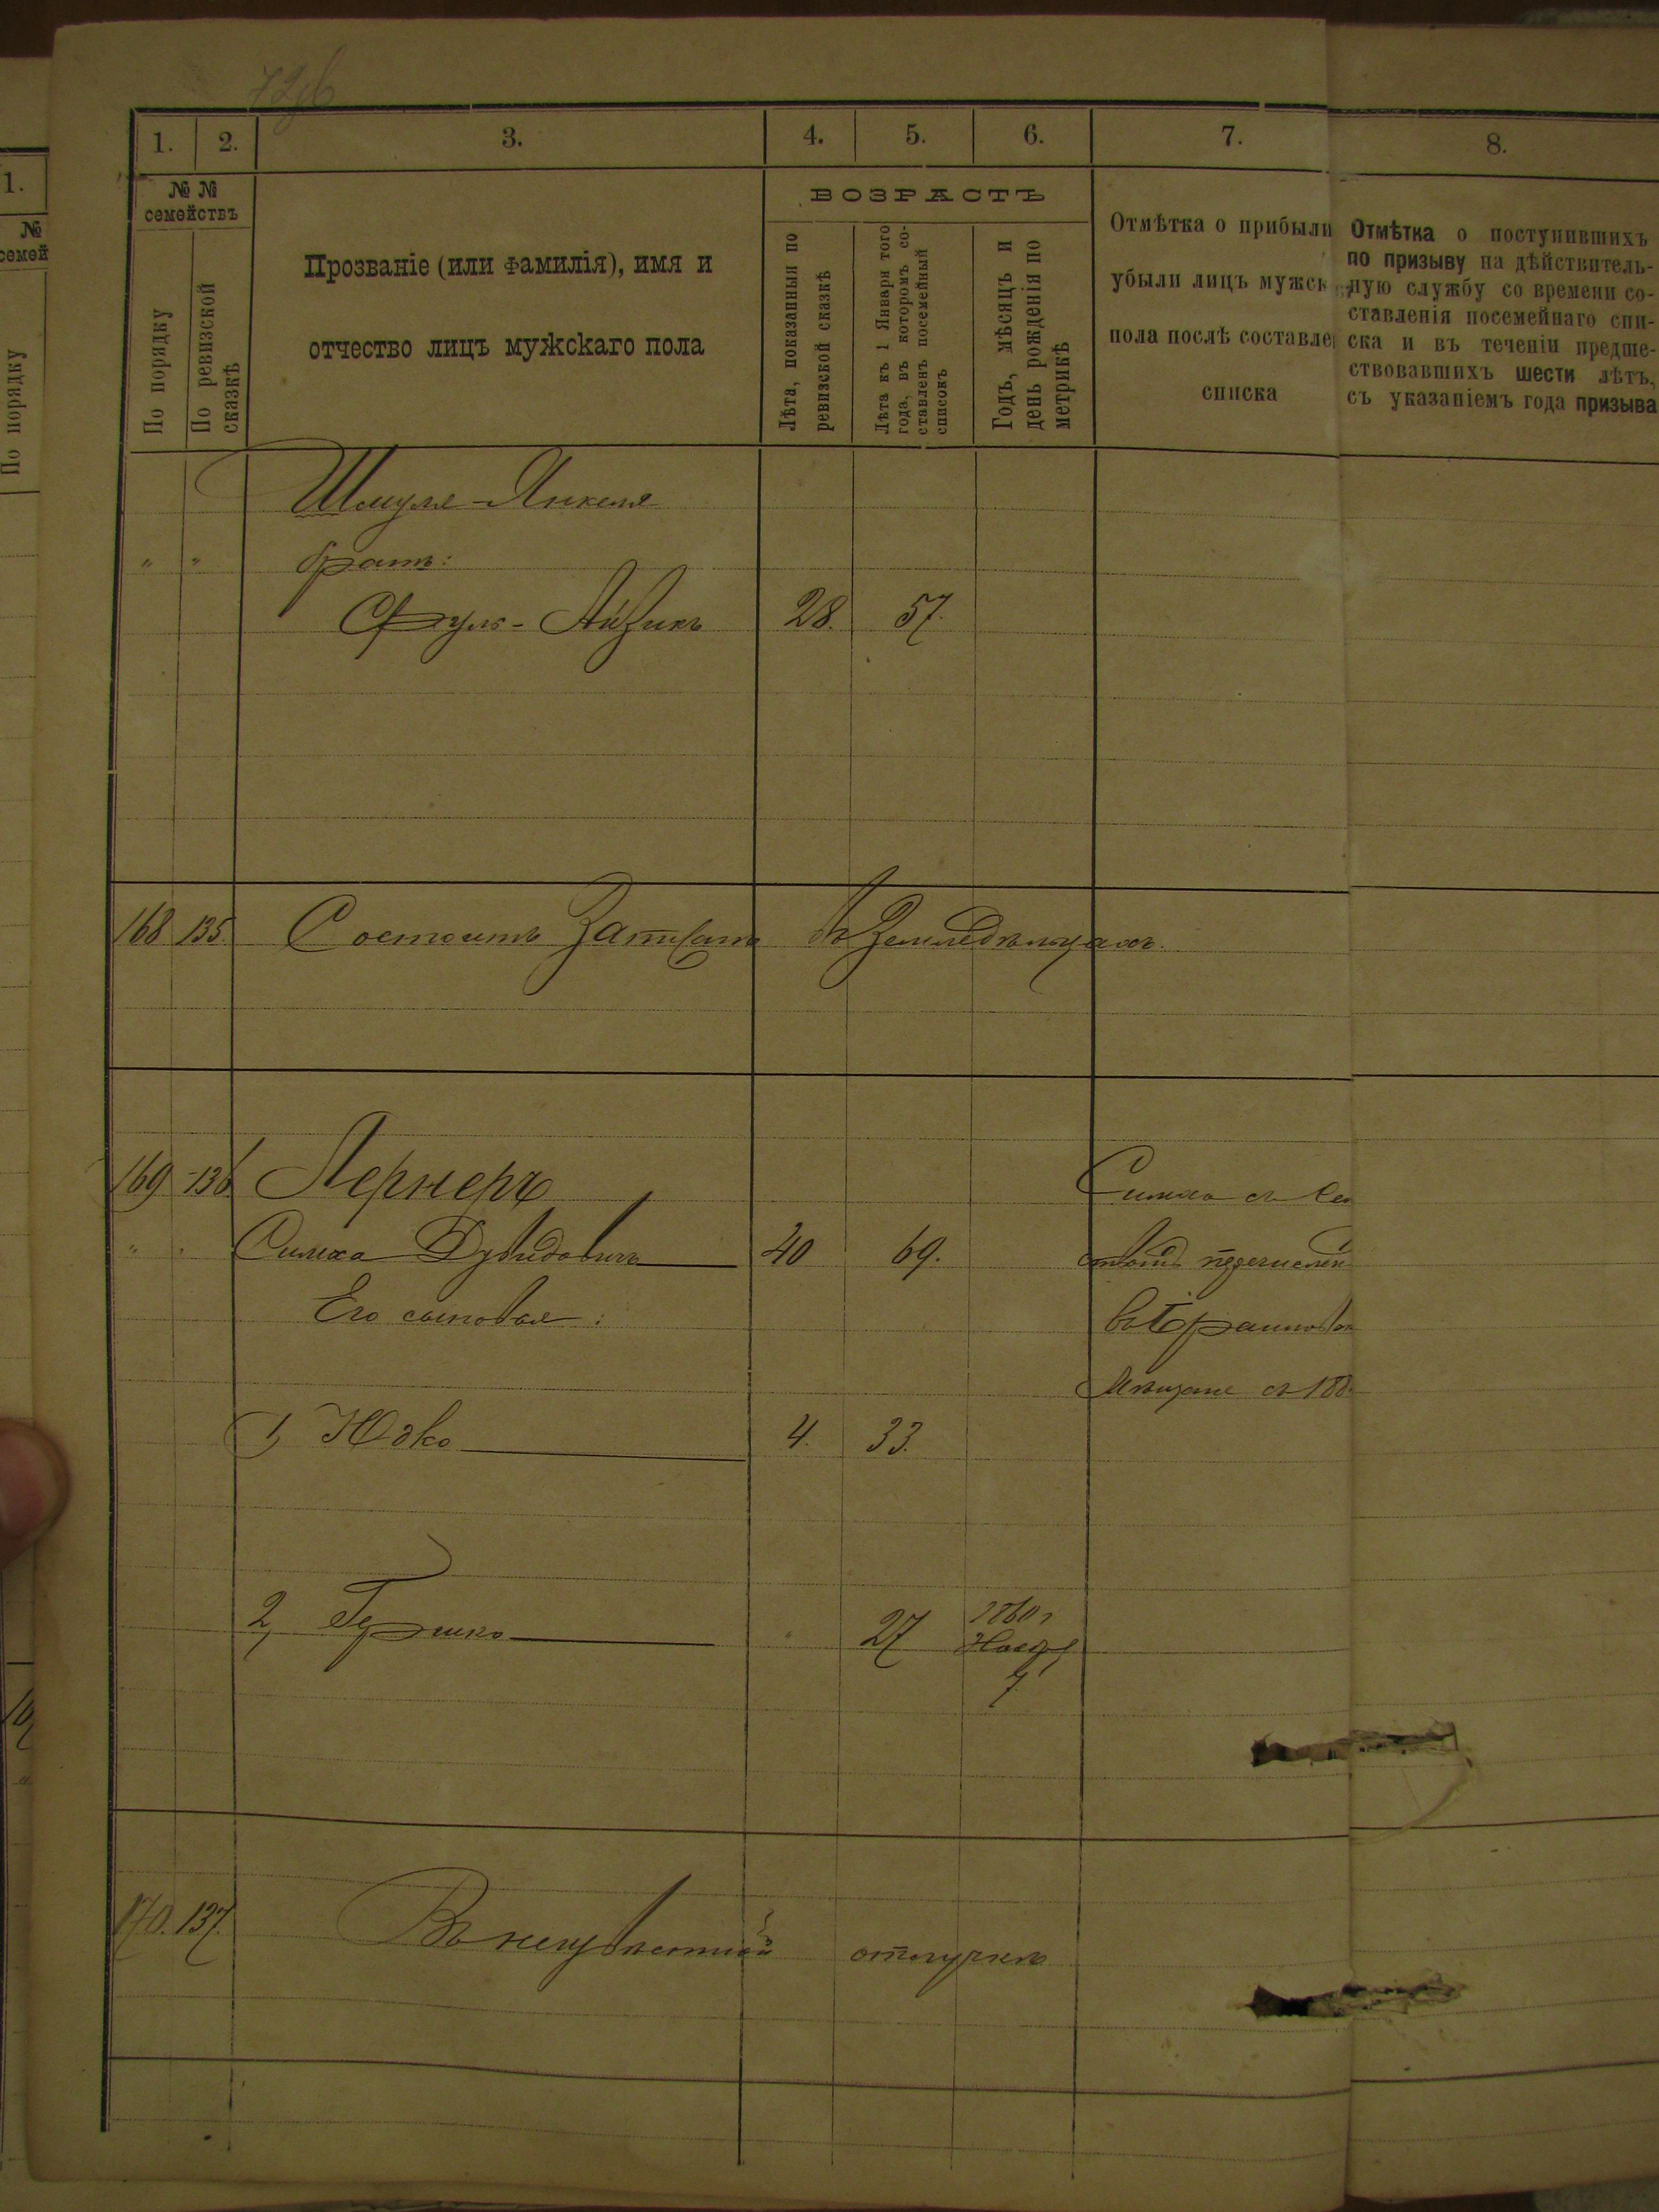 1. 2. 3. 4. 5. 6. 7. 8.
1.
№ №
семействъ
По порядку
По ревизской
сказкѣ
Прозваніе (или фамилія), имя и
отчество лицъ мужскаго пола
ВОЗРАСТЪ
Лѣта, показанныя по
ревизской сказкѣ
Лѣта къ 1 Января того
года, въ которомъ со-
ставленъ посемейный
списокъ
Годъ, мѣсяцъ и
день рожденія по
метрикѣ
Отмѣтка о прибыли
убыли лицъ мужск
пола послѣ составле
списка
Отмѣтка о поступившихъ
по призыву на дѣйствитель-
ную службу со времени со-
ставленія посемейнаго спи-
ска и въ теченіи предше-
ствовавшихъ шести лѣтъ,
съ указаніемъ года призыва
№
семей
По порядку
Шмуля-Янкеля
" " братъ:
Сруль-Айзикъ 28. 57.
168 135 Состоитъ Записанъ въ Земледѣльцахъ.
169 136 Лернеръ
Симха съ Сем
" " Симха Дувидовичъ 40 69.
ствомъ перечислен
Его сыновья:
мѣщане съ 188
1, Юдко 4. 33.
2, Гершко " 27 1860 г
7
170. 137. Въ неизвѣстной отлучкѣ